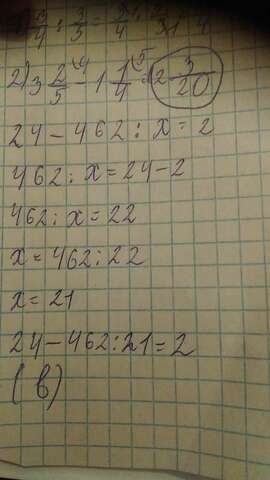 : 3/5 =
2) 3 2/5 - 1 1/4 = 2 3/20
24 - 462 : x = 2
462 : x = 24 - 2
462 : x = 22
x = 462 : 22
x = 21
24 - 462 : 21 = 2
(в)